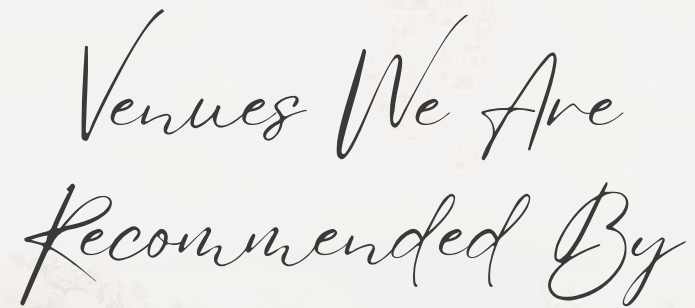 Venues We Are
Recommended By